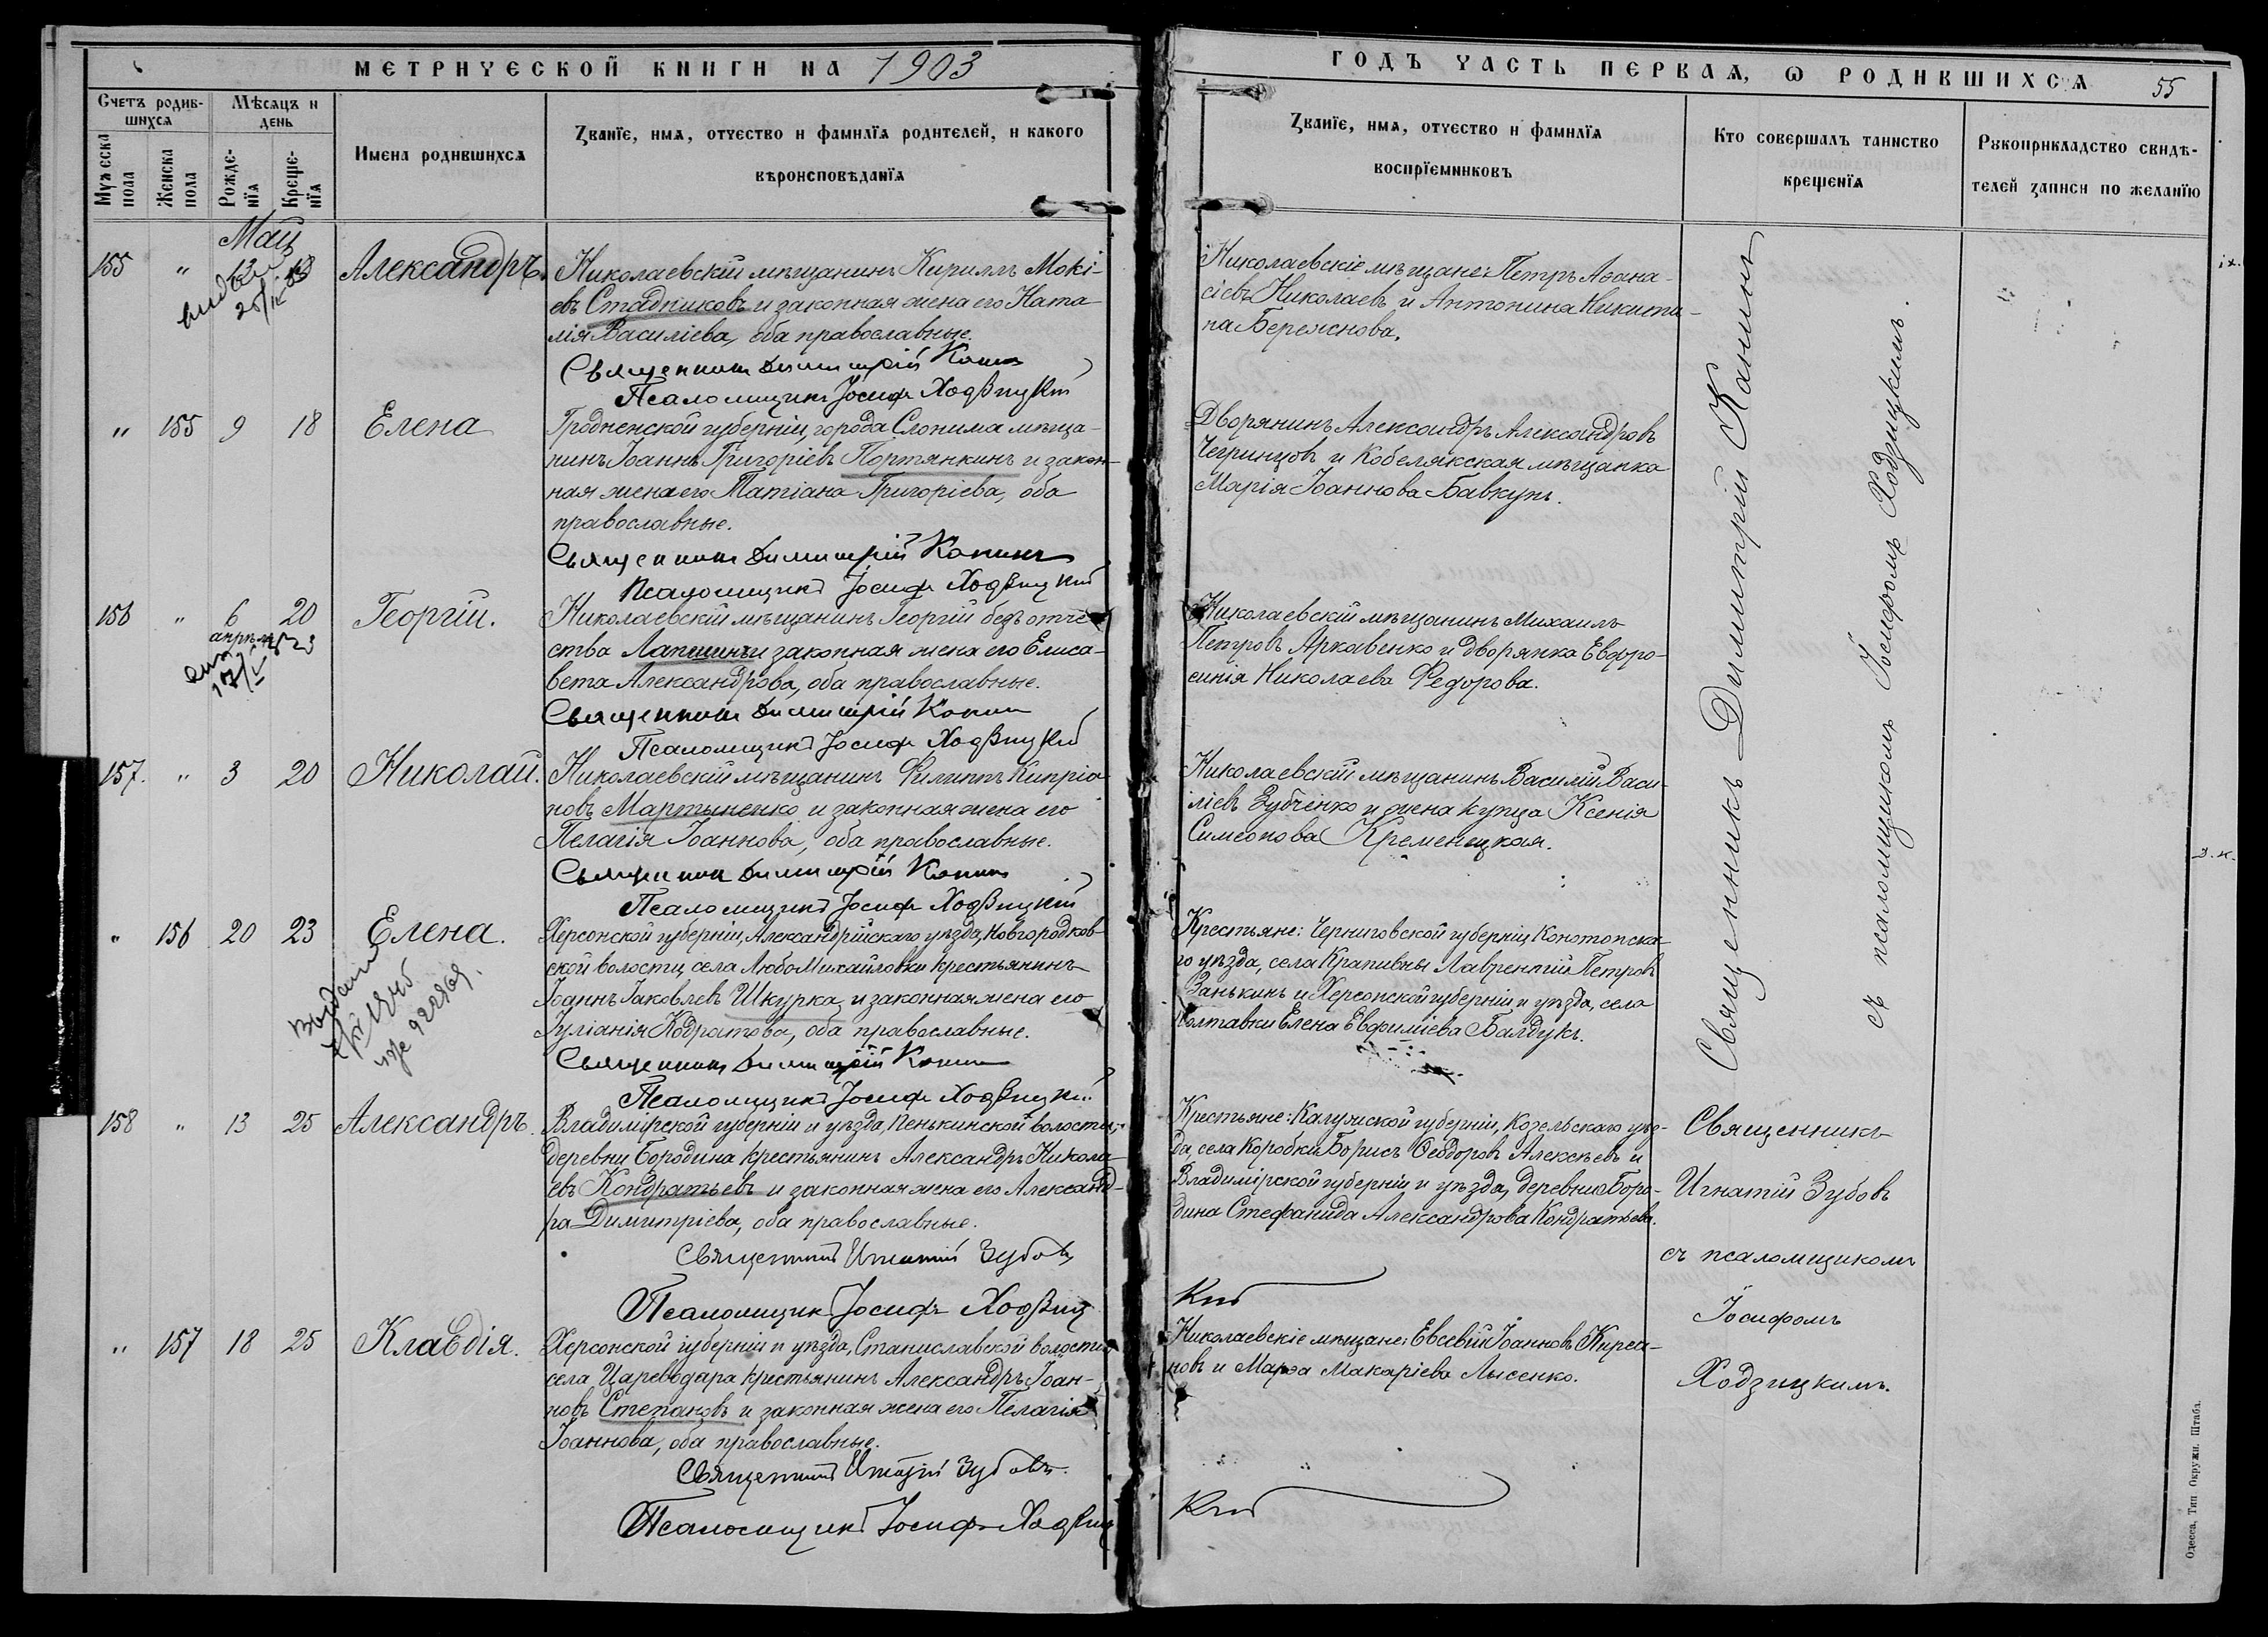 МЕТРИЧЕСКОЙ КНИГИ НА 1903
ГОДЪ ЧАСТЬ ПЕРВАЯ, Ѡ РОДИВШИХСЯ 55
Счетъ родив-
шихся
Мѣсяцъ и
день
Мужеска
пола
Женска
пола
Рожде-
нія
Креще-
нія
Имена родившихся
Званіе, имя, отчество и фамилія родителей, и какого
вѣроисповѣданія
Званіе, имя, отчество и фамилія
воспріемниковъ
Кто совершалъ таинство
крещенія
Рукоприкладство свидѣ-
телей записи по желанію
Май
155 " Александръ.
Николаевскій мѣщанинъ Кириллъ Мокі-
евъ Стадниковъ и законная жена его Ната
лія Василіева, оба православные.
Священникъ Димитрій Канинъ
Псаломщикъ Іосифъ Ходзицкій
Николаевскіе мѣщане: Петръ Аѳана-
сіевъ Николаевъ и Антонина Никити-
на Бережнова.
" 155 9 18 Елена
Гродненской губерніи, города Слонима мѣща-
нинъ Іоаннъ Григоріевъ Портянкинъ и закон-
ная жена его Татіана Григоріева, оба
православные.
Священникъ Димитрій Канинъ
Псаломщикъ Іосифъ Ходзицкій
Дворянинъ Александръ Александровъ
Чегринцовъ и Кобелякская мѣщанка
Марія Іоаннова Бавкунъ.
156 " 6 20 Георгій.
апрѣля
Николаевскій мѣщанинъ Георгій безъ отче
ства Лапшинъ и законная жена его Елиса-
вета Александрова, оба православные.
Священникъ Димитрій Канинъ
Псаломщикъ Іосифъ Ходзицкій
Николаевскій мѣщанинъ Михаилъ
Петровъ Аркавенко и дворянка Евфро-
синія Николаева Федорова.
157. " 3 20 Николай.
Николаевскій мѣщанинъ Филиппъ Кипріа
новъ Мартыненко и законная жена его
Пелагія Іоаннова, оба православные.
Священникъ Димитрій Канинъ
Псаломщикъ Іосифъ Ходзицкій
Николаевскій мѣщанинъ Василій Васи-
ліевъ Зубченко и жена купца Ксенія
Симеонова Кременецкая.
" 156 20 23 Елена.
Херсонской губерніи, Александрійскаго уѣзда, Новгородков-
ской волости, села Любомихайловки крестьянинъ
Іоаннъ Іаковлевъ Шкурка и законная жена его
Іуліанія Кодратова, оба православные.
Священникъ Димитрій Канинъ
Псаломщикъ Іосифъ Ходзицкій
Крестьяне: Черниговской губерніи Конотопска-
го уѣзда, села Крапивны Лаврентій Петровъ
Занькинъ и Херсонской губерніи и уѣзда, села
Полтавки Елена Евфиміева Балдукъ.
Священникъ Димитрій Канинъ
съ псаломщикомъ Іосифомъ Ходзицкимъ.
158 " 13 25 Александръ.
Владимірской губерніи и уѣзда, Пенькинской волости,
деревни Бородина крестьянинъ Александръ Никола
евъ Кондратьевъ и законная жена его Александ-
ра Димитріева, оба православные.
Священникъ Игнатій Зубовъ
Псаломщикъ Іосифъ Ходзицкій
Крестьяне: Калужской губерніи, Козельскаго уѣз-
да, села Коробки Борисъ Ѳеодоровъ Алексѣевъ и
Владимірской губерніи и уѣзда, деревни Боро-
дина Стефанида Александрова Кондратьева.
Священникъ
Игнатій Зубовъ
съ псаломщикомъ
Іосифомъ
Ходзицкимъ.
" 157 18 25 Клавдія.
Херсонской губерніи и уѣзда, Станиславской волости,
села Цареводара крестьянинъ Александръ Іоан-
новъ Степановъ и законная жена его Пелагія
Іоаннова, оба православные.
Священникъ Игнатій Зубовъ.
Псаломщикъ Іосифъ Ходзицкій
Николаевскіе мѣщане: Евсевій Іоанновъ Кирса-
новъ и Марѳа Макаріева Лысенко.
Одесса, Тип Окружн. Штаба.